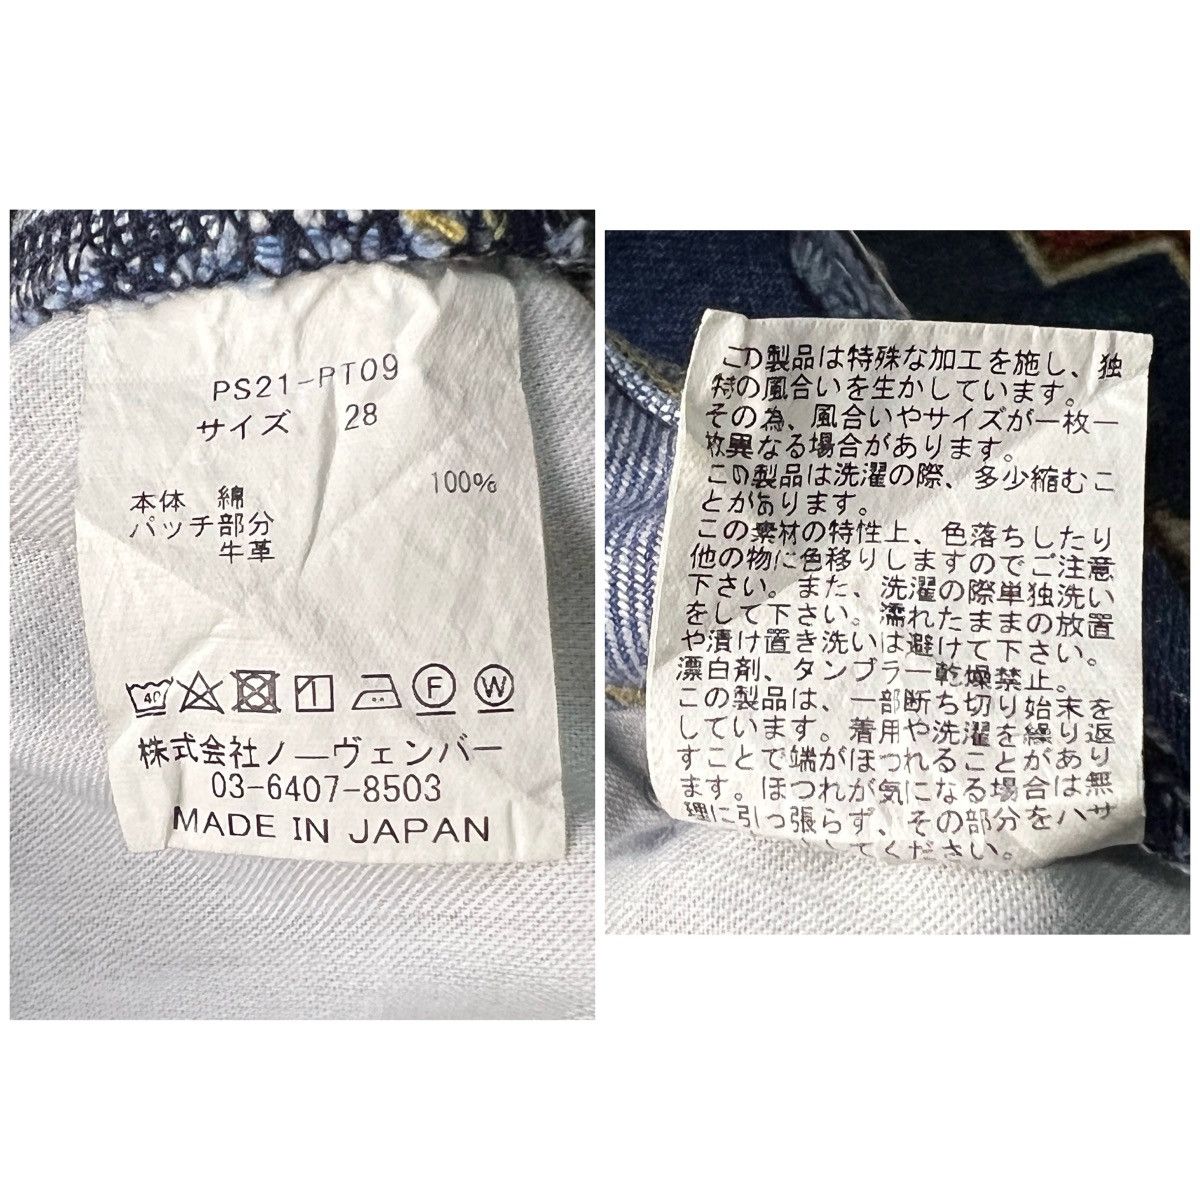 PS21-PT09
サイズ 28
100%
本体 綿
パッチ部分
牛革
40
F
W
株式会社ノーヴェンバー
03-6407-8503
MADE IN JAPAN
この製品は特殊な加工を施し、独
特の風合いを生かしています。
その為、風合いやサイズが一枚一
枚異なる場合があります。
この製品は洗濯の際、多少縮むこ
とがあります。
この素材の特性上、色落ちしたり
他の物に色移りしますのでご注意
下さい。また、洗濯の際単独洗い
をして下さい。濡れたままの放置
や漬け置き洗いは避けて下さい。
漂白剤、タンブラー乾燥禁止。
この製品は、一部断ち切り始末を
しています。着用や洗濯を繰り返
すことで端がほつれることがあり
ます。ほつれが気になる場合は無
理に引っ張らず、その部分をハサ
してください。